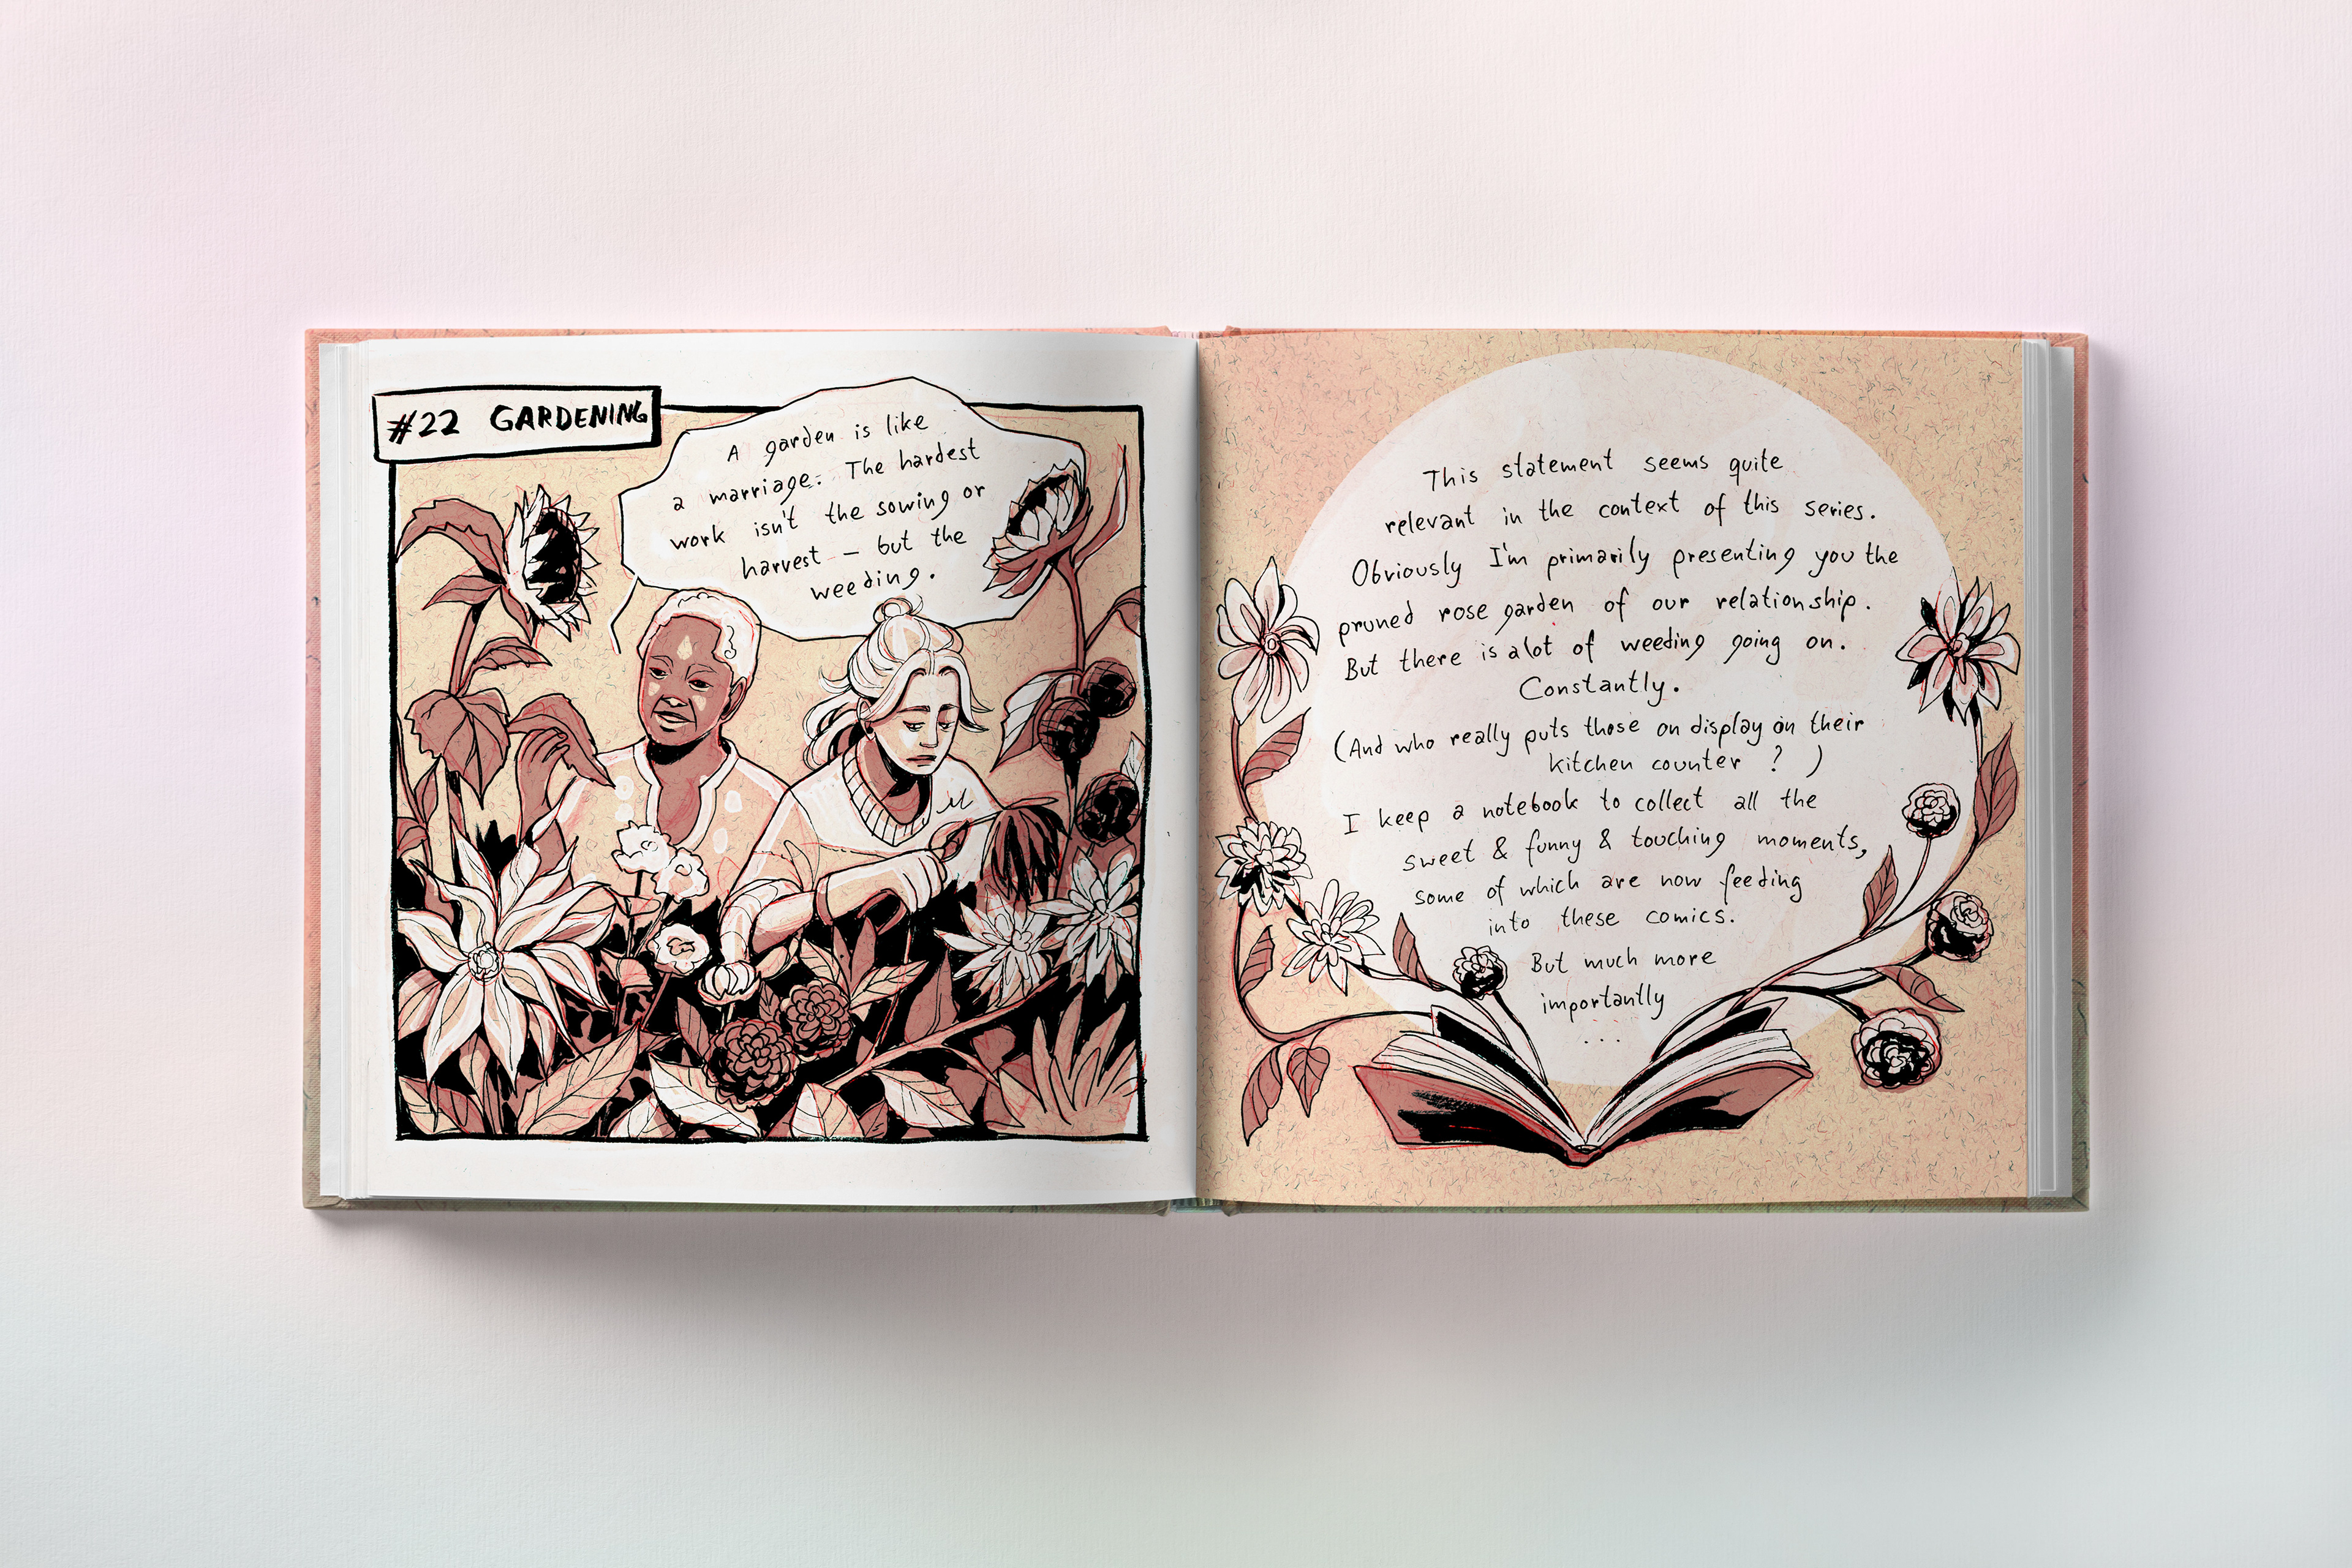 #22 GARDENING
A garden is like
a marriage: The hardest
work isn't the sowing or
harvest – but the
weeding.
This statement seems quite
relevant in the context of this series.
Obviously I'm primarily presenting you the
pruned rose garden of our relationship.
But there is a lot of weeding going on.
Constantly.
(And who really puts those on display on their
kitchen counter? )
I keep a notebook to collect all the
sweet & funny & touching moments,
some of which are now feeding
into these comics.
But much more
importantly
...